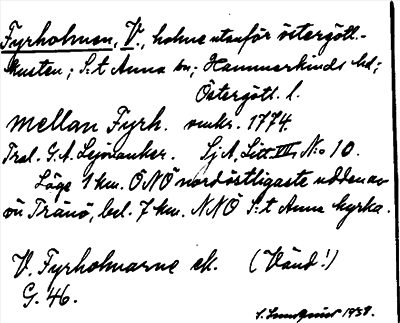 Fyrholmen, V., holme utanför östergötl.-
kusten; S:t Anna sn; Hammarkinds hd;
Östergötl. l.
mellan Fyrh. omkr. 1774.
Tral. G. A. Lejonanker. Sj A, Litt. VII, No 10.
Läge 1 km. ÖNÖ nordöstligaste udden av
ön Tränö, bel. 7 km. NNÖ S:t Anna kyrka.
V. Fyrholmarne ek. (Vänd!)
G. 46.
S. Lundqvist 1938.